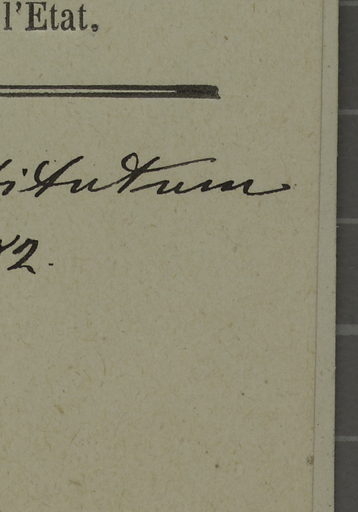 l'Etat.
titutum
82.